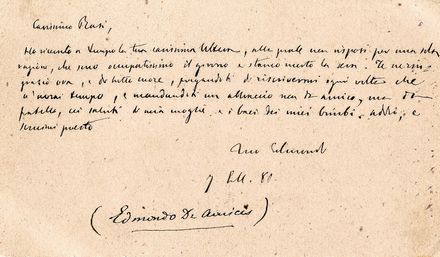 Carissimo Rasi,
Ho ricevuto a suo tempo la tua carissima lettera, alla quale non risposi per una sola
ragione, che sono occupatissimo il giorno e stanco morto la sera. Ti rin
grazio ora, e di tutto cuore, pregandoti di riscrivermi ogni volta che
n'avrai tempo, e mandandoti un abbraccio non da amico, ma da
fratello, coi saluti di mia moglie e i baci dei miei bimbi. Addio, e
scrivimi presto
Tuo Edmondo
7 80.
(Edmondo De Amicis)